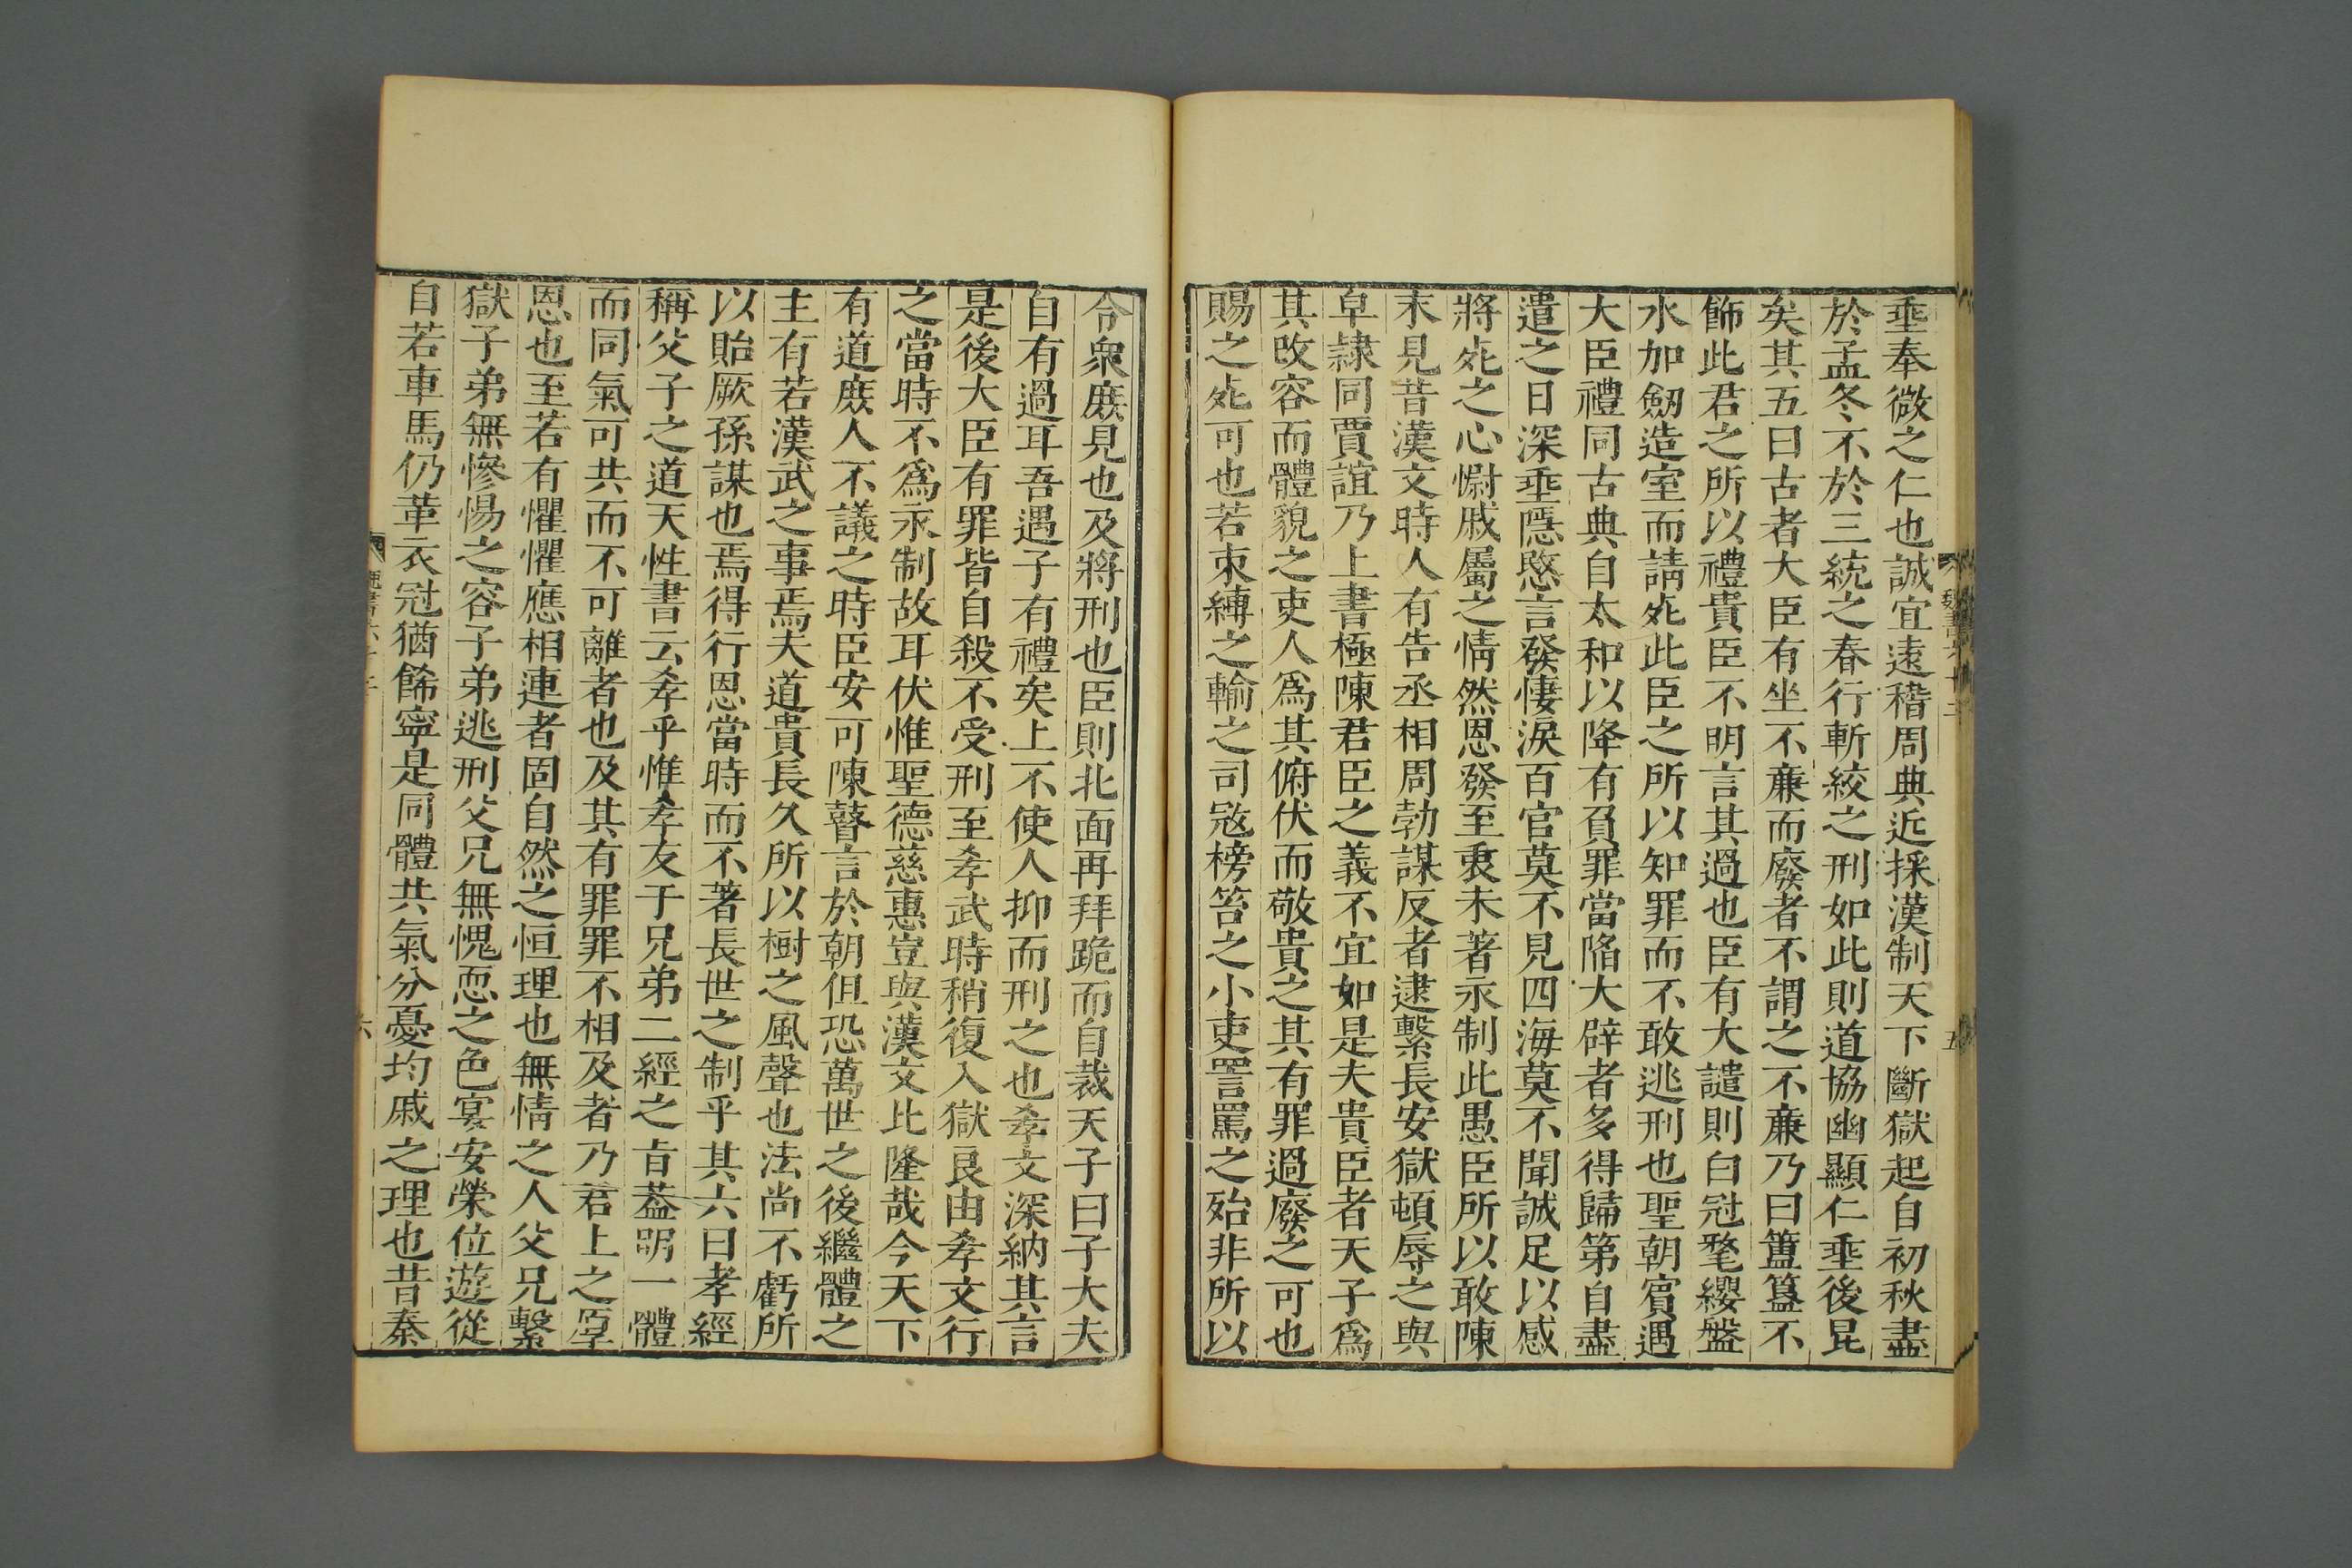 垂奉微之仁也誠宜遠稽周典近採漢制天下斷獄起自初秋盡
於孟冬不於三統之春行斬絞之刑如此則道協幽顯仁垂後昆
矣其五曰古者大臣有坐不廉而廢者不謂之不廉乃曰簠簋不
飾此君之所以禮貴臣不明言其過也臣有大譴則白冠氂纓盤
水加劒造室而請死此臣之所以知罪而不敢逃刑也聖朝賓遇
大臣禮同古典自太和以降有負罪當陷大辟者多得歸第自盡
遣之日深垂隱愍言發悽淚百官莫不見四海莫不聞誠足以感
將死之心慰戚屬之情然恩發至衷未著永制此愚臣所以敢陳
末見昔漢文時人有告丞相周勃謀反者逮繫長安獄頓辱之與
皁隸同賈誼乃上書極陳君臣之義不宜如是夫貴臣者天子爲
其改容而體貌之吏人爲其俯伏而敬貴之其有罪過廢之可也
賜之死可也若束縛之輸之司寇榜笞之小吏詈罵之殆非所以
令衆庶見也及將刑也臣則北面再拜跪而自裁天子曰子大夫
自有過耳吾遇子有禮矣上不使人抑而刑之也孝文深納其言
是後大臣有罪皆自殺不受刑至孝武時稍復入獄良由孝文行
之當時不爲永制故耳伏惟聖德慈惠豈與漢文比隆哉今天下
有道庶人不議之時臣安可陳瞽言於朝但恐萬世之後繼體之
主有若漢武之事焉夫道貴長久所以樹之風聲也法尚不虧所
以貽厥孫謀也焉得行恩當時而不著長世之制乎其六曰孝經
稱父子之道天性書云孝乎惟孝友于兄弟二經之旨葢明一體
而同氣可共而不可離者也及其有罪罪不相及者乃君上之厚
恩也至若有懼懼應相連者固自然之恒理也無情之人父兄繫
獄子弟無慘惕之容子弟逃刑父兄無愧恧之色宴安榮位遊從
自若車馬仍華衣冠猶餙寧是同體共氣分憂均戚之理也昔秦